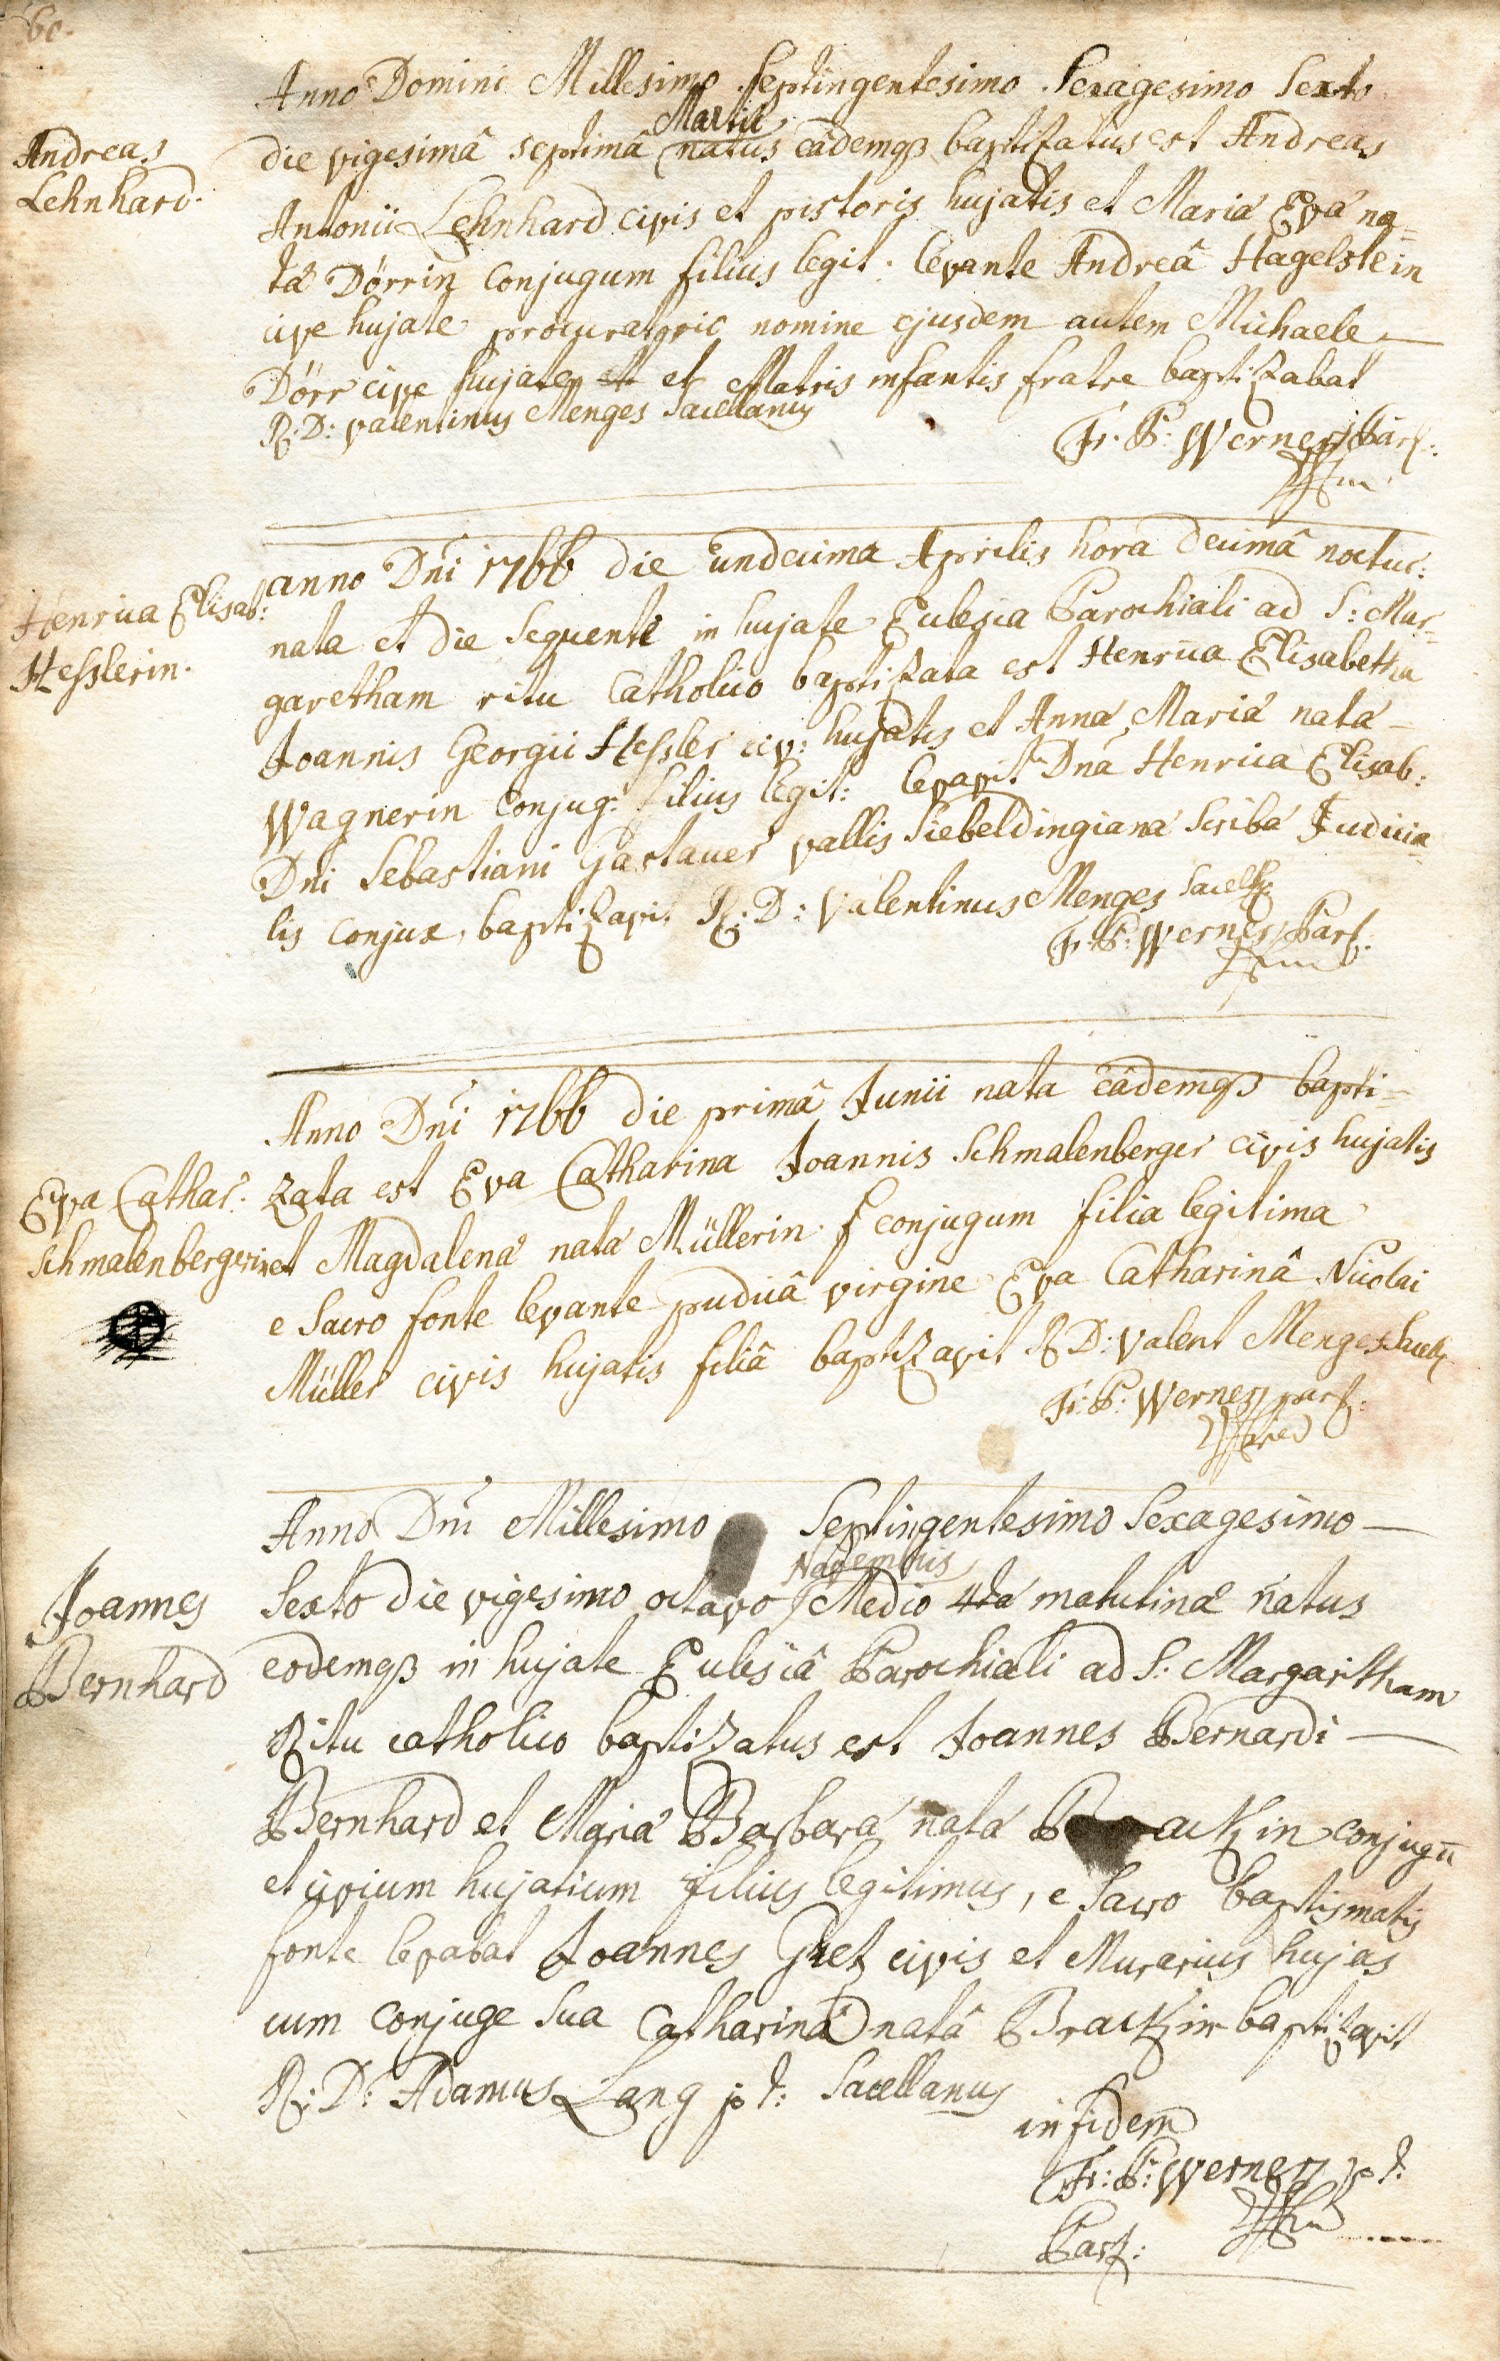 60.
Anno Domini Millesimo Septingentesimo Sexagesimo Sexto
Martii
die vigesimâ septimâ natus eâdemqß baptizatus est Andreas
Andreas
Lehnhard.
Antonii Lehnhard civis et pistoris hujatis et Maria Eva na=
ta Dörrin conjugum filius legit. levante Andreâ Hagelstein
cive hujate procuratorio nomine ejusdem autem Michaele
Dörr cive hujate et et Matris infantis fratre baptizabat
R: D: Valentinus Menges Sacellanus
Fr. P: Werner Par:
anno Dni 1766 die undecima Aprilis hora decimâ noctur:
Henrica Elisab:
Hesslerin.
nata et die sequenti in hujate Eclesia Parochiali ad S: Mar=
garetham ritu Catholico baptizata est Henrica Elisabetha
Joannis Georgii Hessler civ: hujatis et Anna Maria nata
Wagnerin conjug: filius legit: levavit Dna Henrica Elisab:
Dni Sebastiani Gastauer vallis Siebeldingiana scriba Judicia=
lis conjux, baptizavit R: D: Valentinus Menges Sacell:
Fr: P: Werner Par:
Anno Dni 1766 die primâ Junii nata eâdemqß bapti=
Eva Cathar:
Schmalenbergerin
zata est Eva Catharina Joannis Schmalenberger civis hujatis
et Magdalena nata Müllerin conjugum filia legitima
e Sacro fonte levante pudicâ virgine Eva Catharinâ Nicolai
Müller civis hujatis filiâ baptizavit R D: Valent Menges Sacell
Fr: P: Werner par:
Anno Dni Millesimo Septingentesimo Sexagesimo
Novembris
Joannes
Bernhard
Sexto die vigesimo octavo Medio 4ta matutina natus
eodemqß in hujate Eclesiâ Parochiali ad S: Margaritham
Ritu catholico baptizatus est Joannes Bernardi
Bernhard et Maria Barbara nata conjugū
et civium hujatium filius legitimus, e Sacro baptismatis
fonte levabat Joannes civis et Murarius hujas
cum conjuge sua Catharinâ natâ Brackin baptizavit
R: D: Adamus Lang p t: Sacellanus
in fidem
Fr: P: Werner p t:
Par: